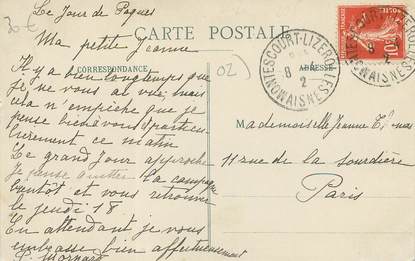 30 €
Le Jour de Paques
Ma petite Jeanne
CARTE POSTALE
CORRESPONDANCE
ADRESSE
02
MONNESCOURT-LIZEROLLES
8
2
AISNE
10
Il y a bien longtemps que
je ne vous ai vue mais
cela n'empêche que je
pense bien à vous
ce matin
Le grand jour approche
je pense quitter la campagne
bientôt et vous retrouver
le jeudi 18
En attendant je vous
embrasse bien affectueusement
Mademoiselle Jeanne
11 rue de la Sourdière
Paris